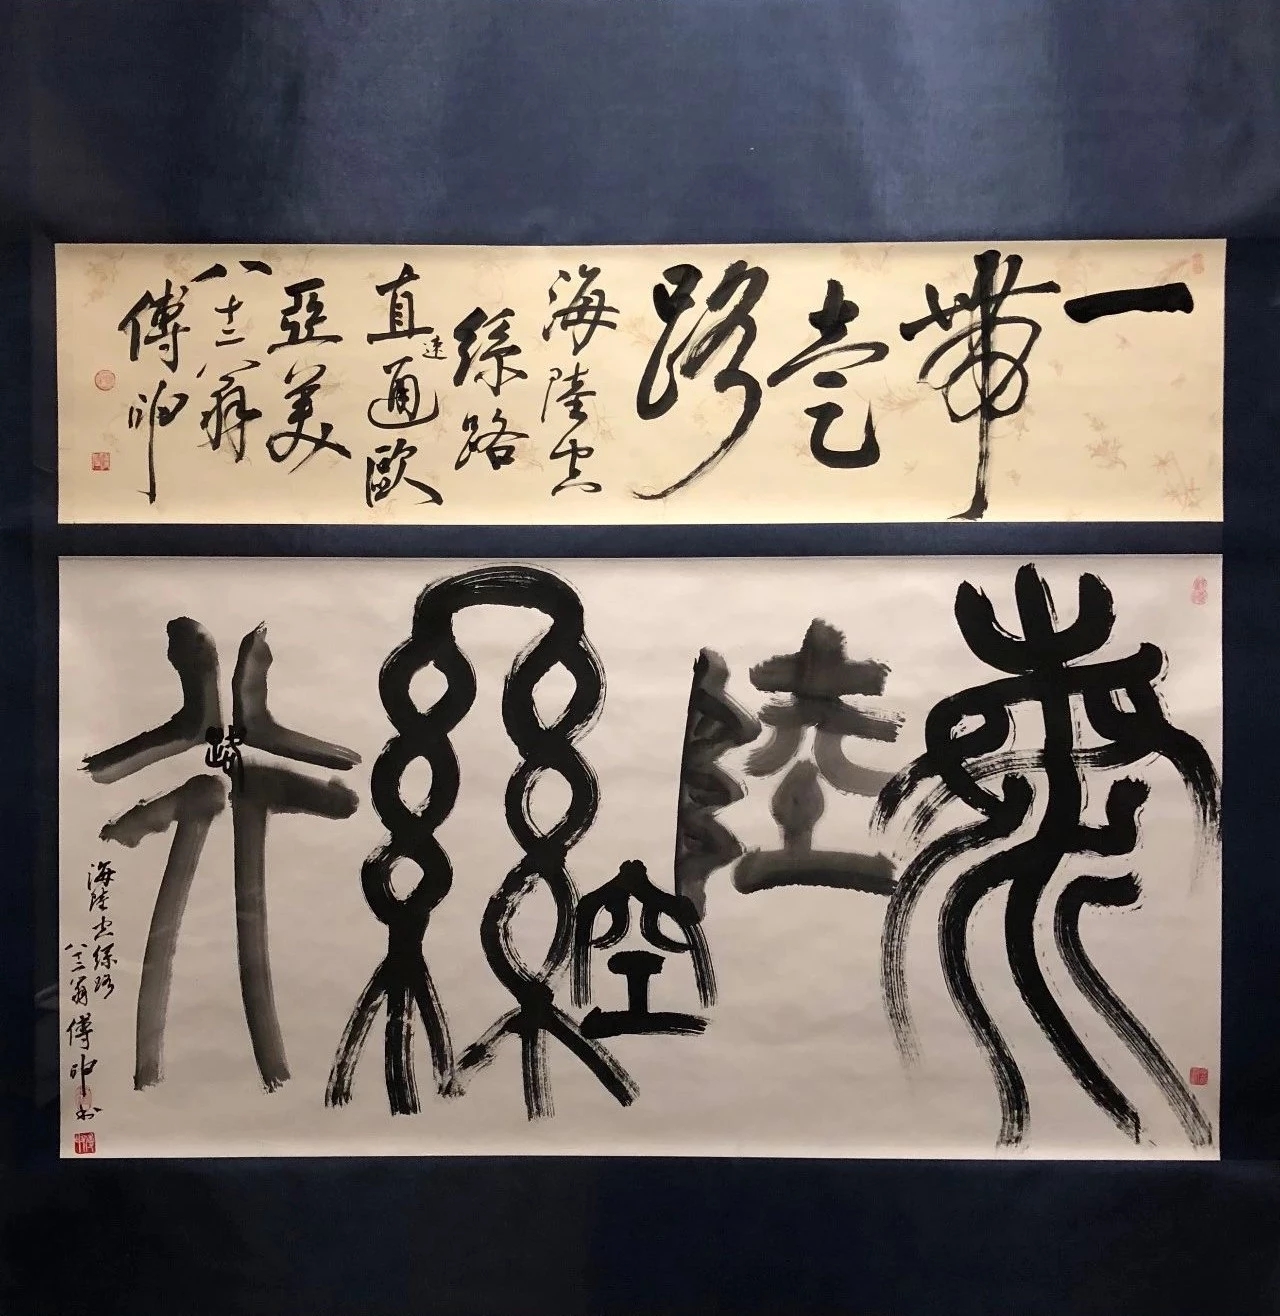 一帶壹路
海陸空
絲路
直達通歐
亞美
八十二八翁
傅申
海陸空絲路
海陸空絲路
八十二翁傅申書